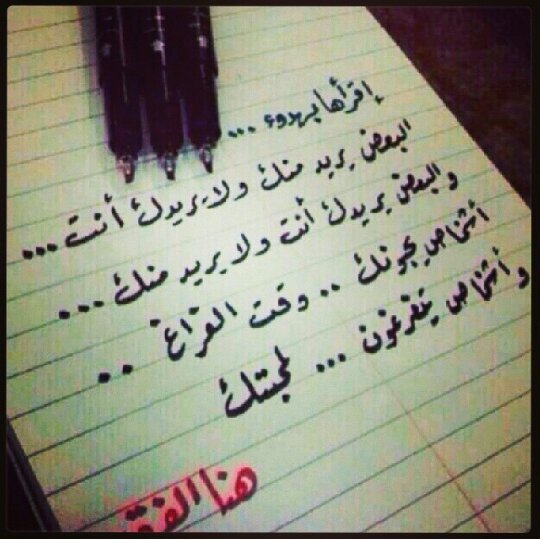 إقرأها بهدوء ...
البعض يريد منك ولا يريدك أنت ...
والبعض يريدك أنت ولا يريد منك ...
أشخاص يحبونك .. وقت الفراغ ..
وأشخاص يتفرغون ... لمحبتك
هنا الفرق